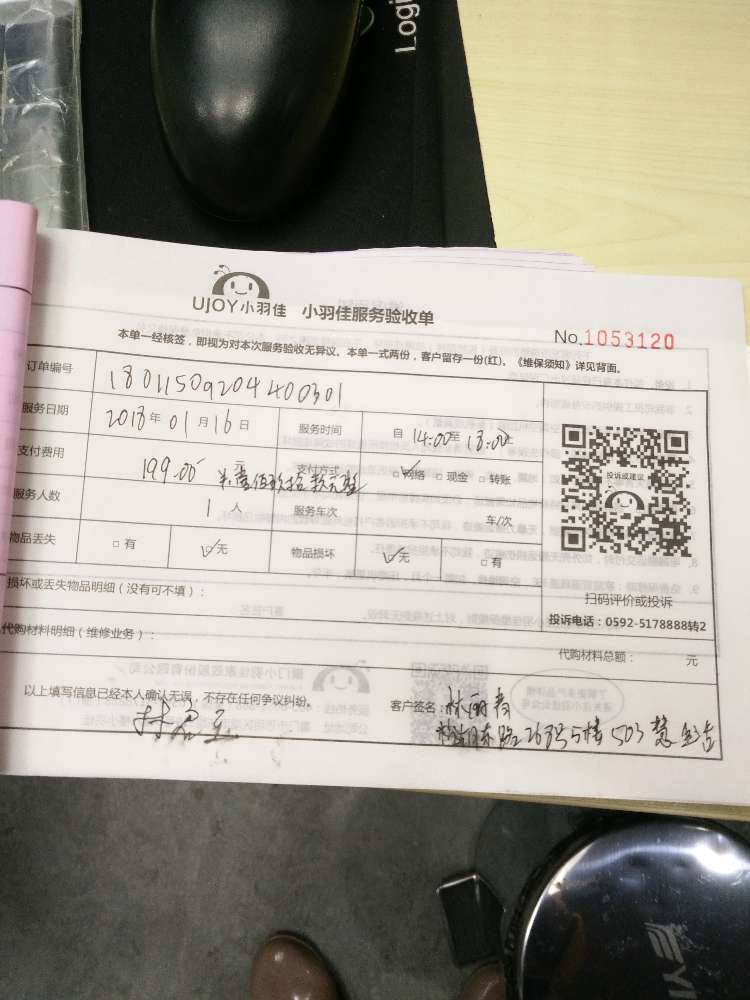 Logi
UJOY小羽佳 小羽佳服务验收单
No.1053120
本单一经核签，即视为对本次服务验收无异议。本单一式两份，客户留存一份(红)。《维保须知》详见背面。
订单编号 1801150920440030​1
服务日期 2018年01月16日 服务时间 自14:00至18:00止
支付费用 199.00元 支付方式 ☑网络 □现金 □转账
服务人数 1人 服务车次 车/次
物品丢失 □有 ☑无 物品损坏 ☑无 □有
投诉或建议
扫码评价或投诉
投诉电话：0592-5178888转2
损坏或丢失物品明细（没有可不填）：
代购材料明细（维修业务）：
代购材料总额： 元
以上填写信息已经本人确认无误，不存在任何争议纠纷。
客户签名：